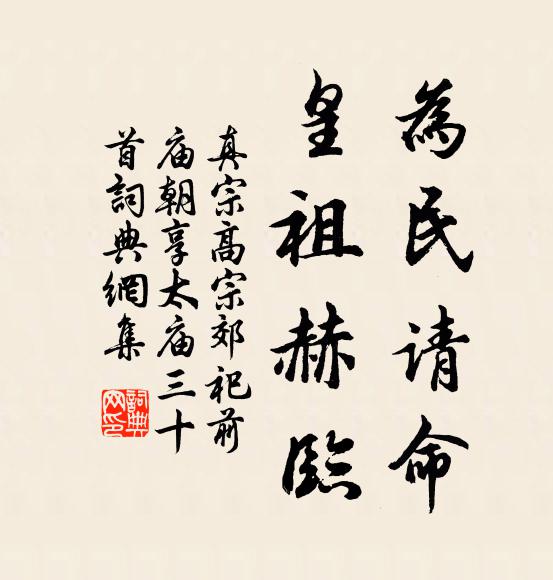 為民请命
皇祖赫臨
真宗高宗郊祀前
庙朝享太庙三十
首詞典網集
詞典网印